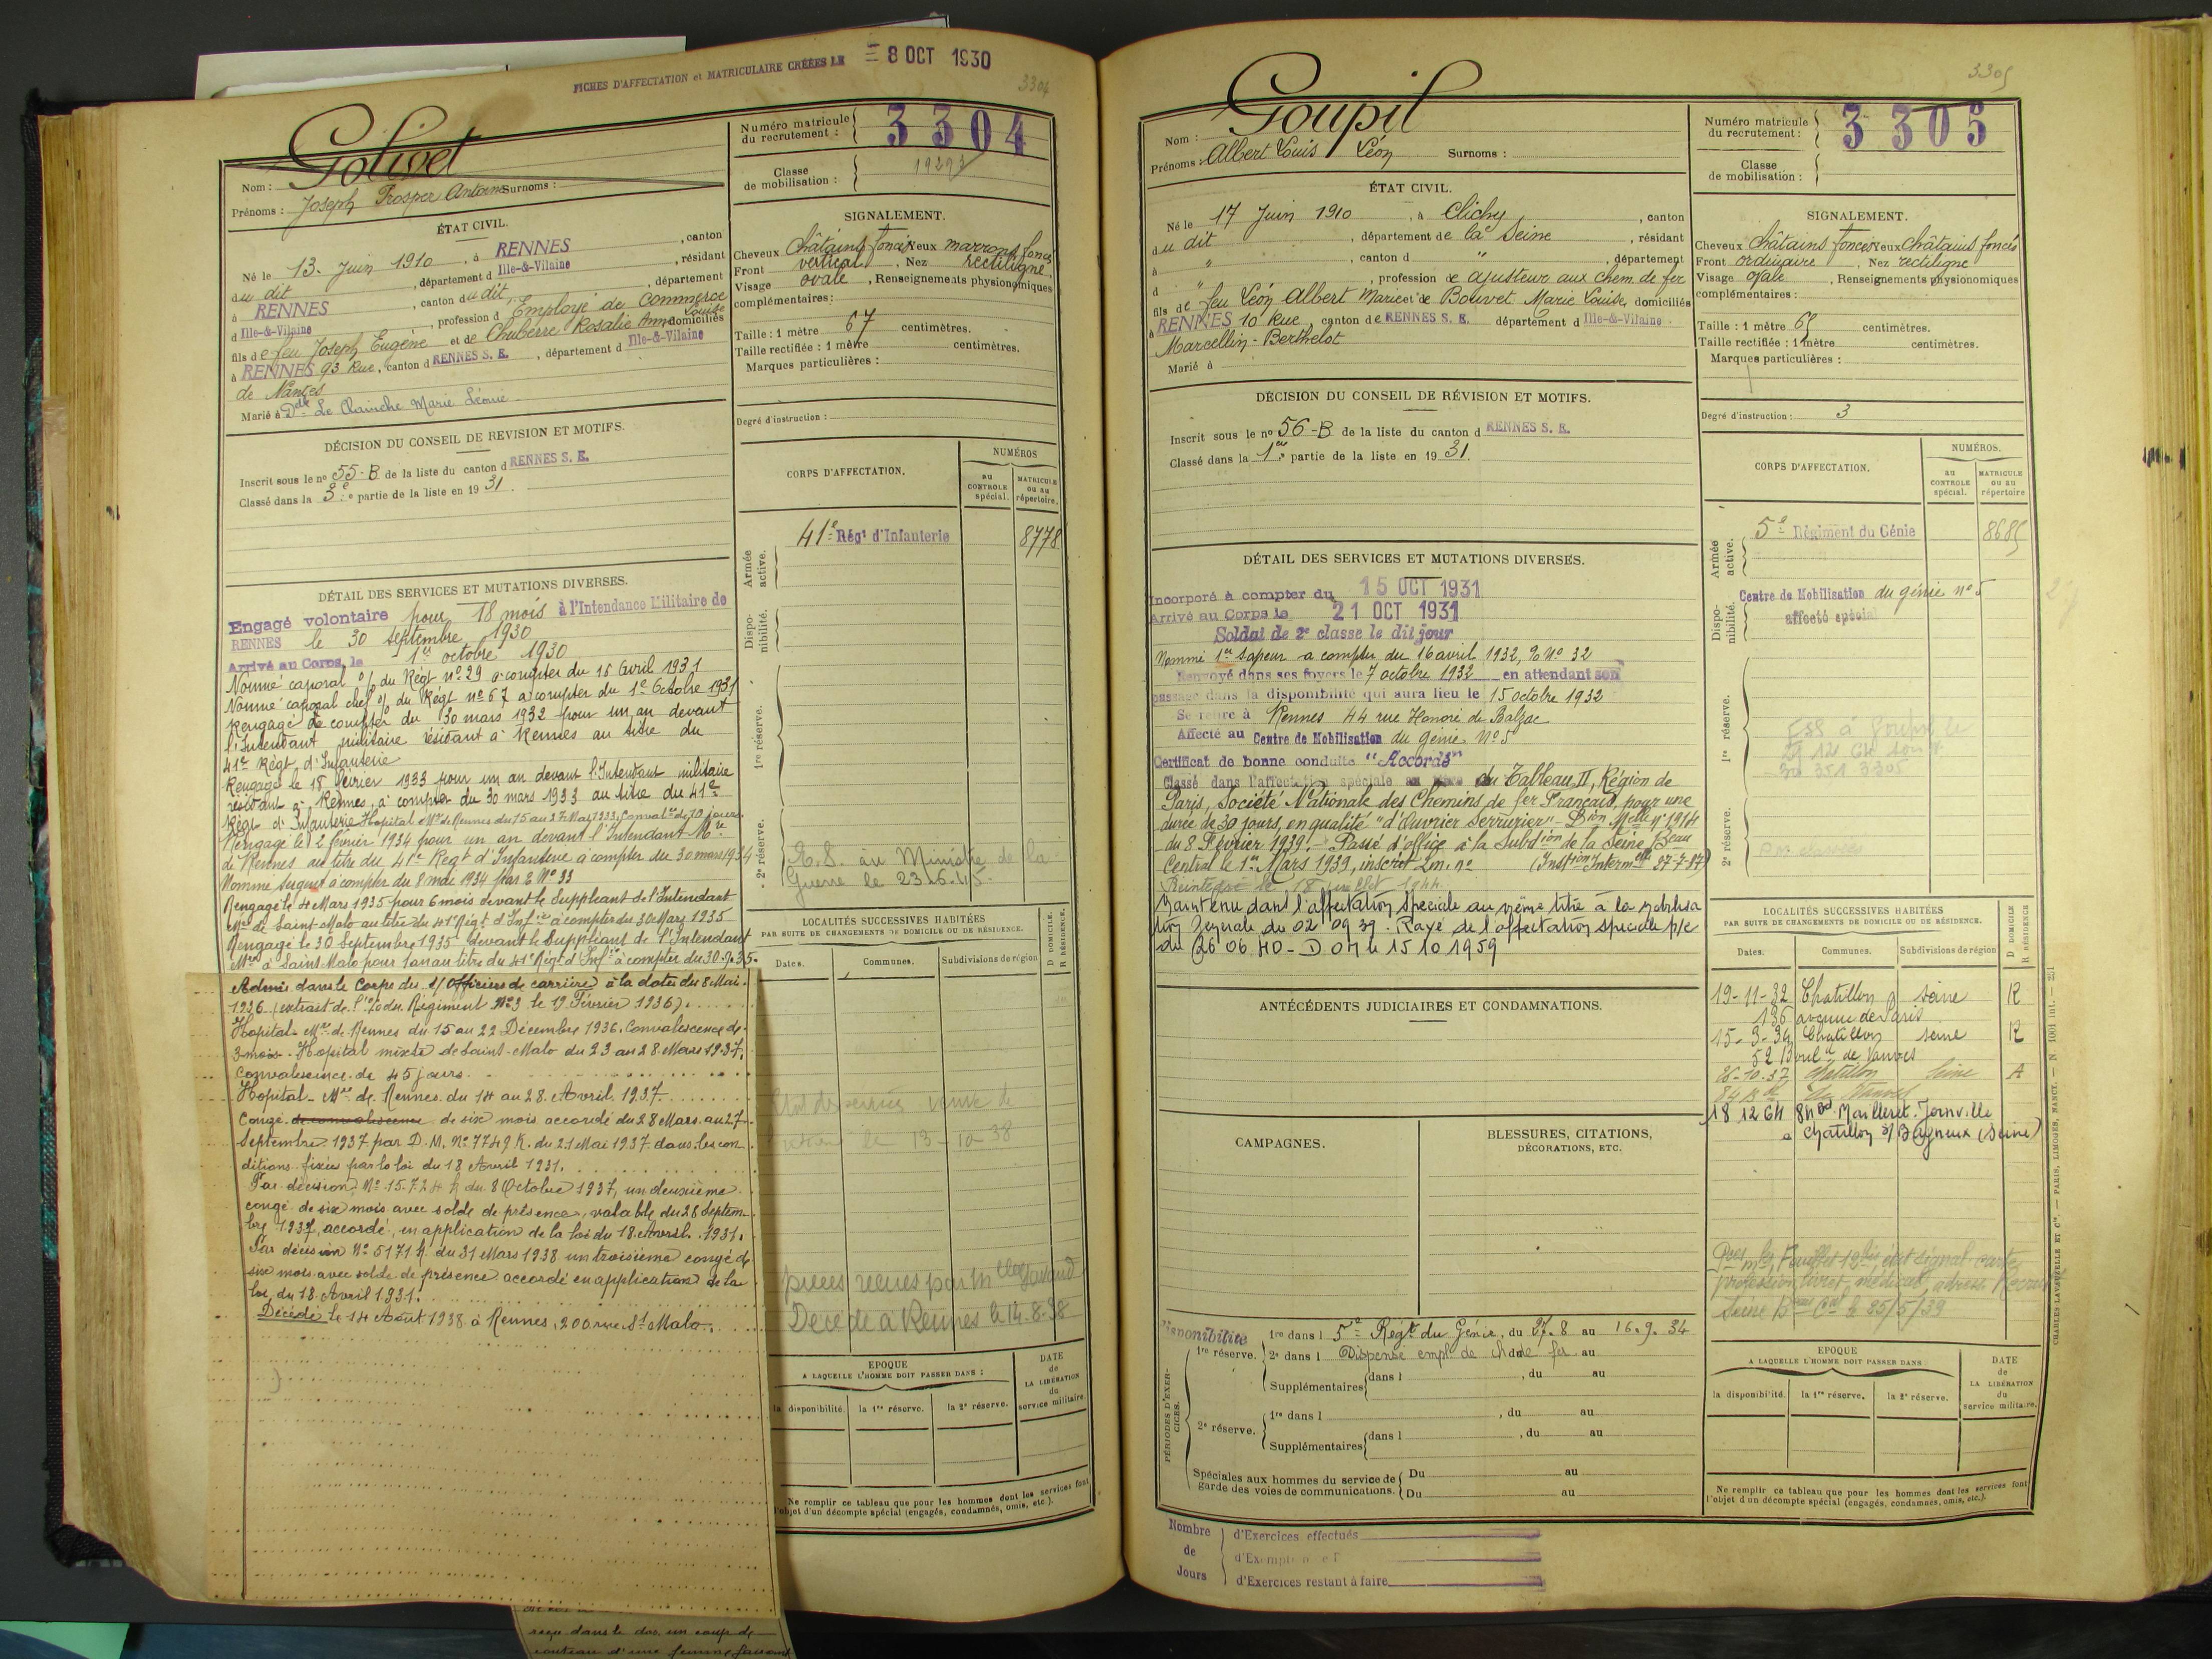 FICHES D'AFFECTATION et MATRICULAIRE CRÉÉES LE = 8 OCT 1930
3304
Golivet
Nom :
Prénoms : Joseph Prosper Antoine Surnoms :
ÉTAT CIVIL.
Né le 13 Juin 1910, à RENNES, canton
du dit, département d Ille-&-Vilaine, résidant
à RENNES, canton du dit, département
d Ille-&-Vilaine, profession d Employé de Commerce
fils de feu Joseph Eugène et de Chuberre Rosalie Anne Louise domiciliés
à RENNES 93 Rue, canton d RENNES S. E., département d Ille-&-Vilaine
de Nantes
Marié à Delle Le Clainche Marie Léonie
DÉCISION DU CONSEIL DE REVISION ET MOTIFS.
Inscrit sous le no 55-B de la liste du canton d RENNES S. E.
Classé dans la 3e partie de la liste en 19 31.
DÉTAIL DES SERVICES ET MUTATIONS DIVERSES.
Engagé volontaire pour 18 mois à l'Intendance Militaire de
RENNES le 30 septembre 1930
Arrivé au Corps le 1er octobre 1930
Nommé caporal o/ du Régt no 29 a compter du 16 Avril 1931
Nommé caporal chef o/ du Régt no 67 a compter du 1er Octobre 1931
Rengagé de compter du 30 mars 1932 pour un an devant
l'Intendant militaire résidant à Rennes au titre du
41e Régt d'Infanterie
Rengagé le 18 février 1933 pour un an devant l'Intendant militaire
résidant à Rennes, à compter du 30 mars 1933 au titre du 41e
Régt d'Infanterie Hopital Mre de Rennes du 15 au 27 Mai 1933, Convalce de 10 jours
Rengagé le 12 février 1934 pour un an devant l'Intendant Mre
de Rennes au titre du 41e Régt d'Infanterie à compter du 30 mars 1934
Nommé sergent à compter du 8 mai 1934 par No 33
Rengagé le 4 Mars 1935 pour 6 mois devant le Suppléant de l'Intendant
Mre de Saint-Malo au titre du 41e Régt d'Infie à compter du 30 Mars 1935
Rengagé le 30 Septembre 1935 devant le Suppléant de l'Intendant
Mre à Saint Malo pour 1 an au titre du 41e Régt d'Infie à compter du 30.9.35.
Admis dans le Corps des S/Officiers de carrière à la date du 8 Mai
1936 (extrait de l'o/o du Régiment No 3 le 19 Février 1936).
Hopital Mre de Rennes du 15 au 22 Décembre 1936. Convalescence de
3 mois. Hopital mixte de Saint-Malo du 23 au 28 Mars 1937.
Convalescence de 45 jours.
Hopital Mre de Rennes du 14 au 28 Avril 1937.
Congé de convalescence de six mois accordé du 28 Mars au 27
Septembre 1937 par D. M. No 7749 K. du 21 Mai 1937 dans les con
ditions fixées par la loi du 18 Avril 1931.
Par décision No 15.724 K du 8 Octobre 1937, un deuxième
congé de six mois avec solde de présence, valable du 28 Septem-
bre 1937, accordé, en application de la loi du 18 Avril 1931.
Par décision No 5171 K du 31 Mars 1938 un troisième congé de
six mois avec solde de présence accordé en application de la
loi du 18 Avril 1931.
Décédé le 14 Août 1938 à Rennes, 200 rue St Malo.
reçu dans le dos un coup de
couteau d'une femme faisant
Numéro matricule du recrutement : 3304
Classe de mobilisation :
SIGNALEMENT.
Cheveux châtains foncés Yeux marrons foncés
Front vertical, Nez rectiligne
Visage ovale, Renseignements physionomiques
complémentaires :
Taille : 1 mètre 67 centimètres.
Taille rectifiée : 1 mètre centimètres.
Marques particulières :
Degré d'instruction :
CORPS D'AFFECTATION.
NUMÉROS
au CONTROLE spécial.
MATRICULE ou au répertoire.
Armée active.
41e Régt d'Infanterie 8778
Disponibilité.
1re réserve.
2e réserve.
au Ministre de la
Guerre le 23.6.45.
LOCALITÉS SUCCESSIVES HABITÉES
PAR SUITE DE CHANGEMENTS DE DOMICILE OU DE RÉSIDENCE.
D DOMICILE.
R RÉSIDENCE.
Dates. Communes. Subdivisions de région
le 13-10-38
pièces reçues par
Décédé à Rennes le 14-8-38
EPOQUE
A LAQUELLE L'HOMME DOIT PASSER DANS :
DATE de LA LIBÉRATION du service militaire.
la disponibilité. la 1re réserve. la 2e réserve.
Ne remplir ce tableau que pour les hommes dont les services font
l'objet d'un décompte spécial (engagés, condamnés, omis, etc.).
3305
Goupil
Nom :
Prénoms : Albert Louis Léon Surnoms :
ÉTAT CIVIL.
Né le 17 Juin 1910, à Clichy, canton
du dit, département de la Seine, résidant
à ", canton d ", département
d ", profession de ajusteur aux chem. de fer
fils de feu Léon Albert Marie et de Bouvet Marie Louise, domiciliés
à RENNES 10 Rue, canton de RENNES S. E. département d Ille-&-Vilaine
Marcellin-Berthelot
Marié à
DÉCISION DU CONSEIL DE RÉVISION ET MOTIFS.
Inscrit sous le no 56-B de la liste du canton d RENNES S. E.
Classé dans la 1re partie de la liste en 19 31.
DÉTAIL DES SERVICES ET MUTATIONS DIVERSES.
Incorporé à compter du 15 OCT 1931
Arrivé au Corps le 21 OCT 1931
Soldat de 2e classe le dit jour
Nommé 1er Sapeur a compter du 16 avril 1932, No 32
Renvoyé dans ses foyers le 7 octobre 1932 en attendant son
passage dans la disponibilité qui aura lieu le 15 octobre 1932
Se retire à Rennes 44 rue Honoré de Balzac
Affecté au Centre de Mobilisation du Génie No 5
Certificat de bonne conduite "Accordé"
Classé dans l'affectation spéciale du Tableau II, Région de
Paris, Société Nationale des Chemins de fer Français, pour une
durée de 30 jours, en qualité "d'Ouvrier Serrurier" Don Melle no 1914
du 8 Février 1939. Passé d'office à la Subdion de la Seine Beau
Central le 1er Mars 1939, inscrit Lm. no (Instion Intermelle 27-7-87)
Réintégré le 18 juillet 1944.
Maintenu dans l'affectation spéciale au même titre à la mobilisa
tion générale du 02 09 39. Rayé de l'affectation spéciale p/c
du 26 06 40 - D O M le 15 10 1959
ANTÉCÉDENTS JUDICIAIRES ET CONDAMNATIONS.
CAMPAGNES.
BLESSURES, CITATIONS,
DÉCORATIONS, ETC.
Disponibilité
PÉRIODES D'EXERCICES.
1re réserve. 1re dans l 5e Régt du Génie, du 27.8 au 16.9.34
2e dans l Dispensé empl. de ch. de fer au
Supplémentaires dans l, du au
2e réserve. 1re dans l, du au
Supplémentaires dans l, du au
Spéciales aux hommes du service de Du au
garde des voies de communications. Du au
Nombre de Jours
d'Exercices effectués
d'Exercices restant à faire
Numéro matricule du recrutement : 3305
Classe de mobilisation :
SIGNALEMENT.
Cheveux châtains foncés Yeux châtains foncés
Front ordinaire, Nez rectiligne
Visage ovale, Renseignements physionomiques
complémentaires :
Taille : 1 mètre 65 centimètres.
Taille rectifiée : 1 mètre centimètres.
Marques particulières :
Degré d'instruction : 3
CORPS D'AFFECTATION.
NUMÉROS.
au CONTROLE spécial.
MATRICULE ou au répertoire
Armée active.
5e Régiment du Génie 8685
Disponibilité.
Centre de Mobilisation du génie no 5
affecté spécial
1re réserve.
2e réserve.
LOCALITÉS SUCCESSIVES HABITÉES
PAR SUITE DE CHANGEMENTS DE DOMICILE OU DE RÉSIDENCE.
D DOMICILE
R RÉSIDENCE
Dates. Communes. Subdivisions de région
19-11-32 Chatillon Seine R
136 avenue de Paris
15-3-34 Chatillon Seine R
52 Bould de Vanves
26-10-37 Chatillon Seine A
84 Bd de Vanves
18 12 64 84 Bd Mailleret-Joinville
à Chatillon s/Bagneux (Seine)
le 25/5/39
EPOQUE
A LAQUELLE L'HOMME DOIT PASSER DANS :
DATE de LA LIBÉRATION du service militaire.
la disponibilité. la 1re réserve. la 2e réserve.
Ne remplir ce tableau que pour les hommes dont les services font
l'objet d'un décompte spécial (engagés, condamnés, omis, etc.).
CHARLES-LAVAUZELLE ET Cie. — PARIS, LIMOGES, NANCY.